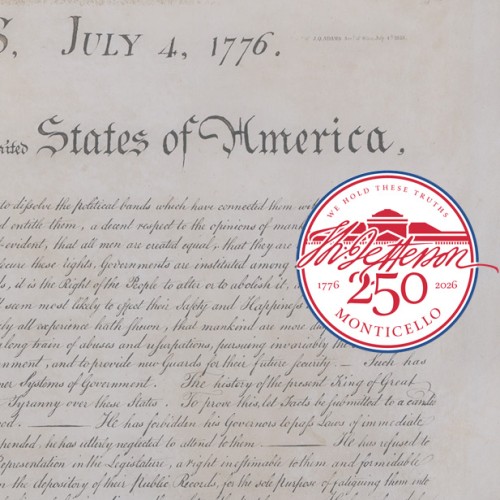 S, JULY 4, 1776.
nited States of America,
to dissolve the political bands which have connected them with
d entitle them, a decent respect to the opinions of man
f-evident, that all men are created equal, that they are
ecure these rights, Governments are instituted among
s, it is the Right of the People to alter or to abolish it,
ll seem most likely to effect their Safety and Happiness
ly all experience hath shewn, that mankind are more dis
long train of abuses and usurpations, pursuing invariably the
nment, and to provide new Guards for their future security.— Such has
mer Systems of Government. The history of the present King of Great
Tyranny over these States. To prove this, let Facts be submitted to a candid
ood. — He has forbidden his Governors to pass Laws of immediate
spended, he has utterly neglected to attend to them — He has refused to
Representation in the Legislature, a right inestimable to them and formidable
m the depository of their Public Records, for the sole purpose of fatiguing them into
WE HOLD THESE TRUTHS
Th. Jefferson
1776 250 2026
MONTICELLO